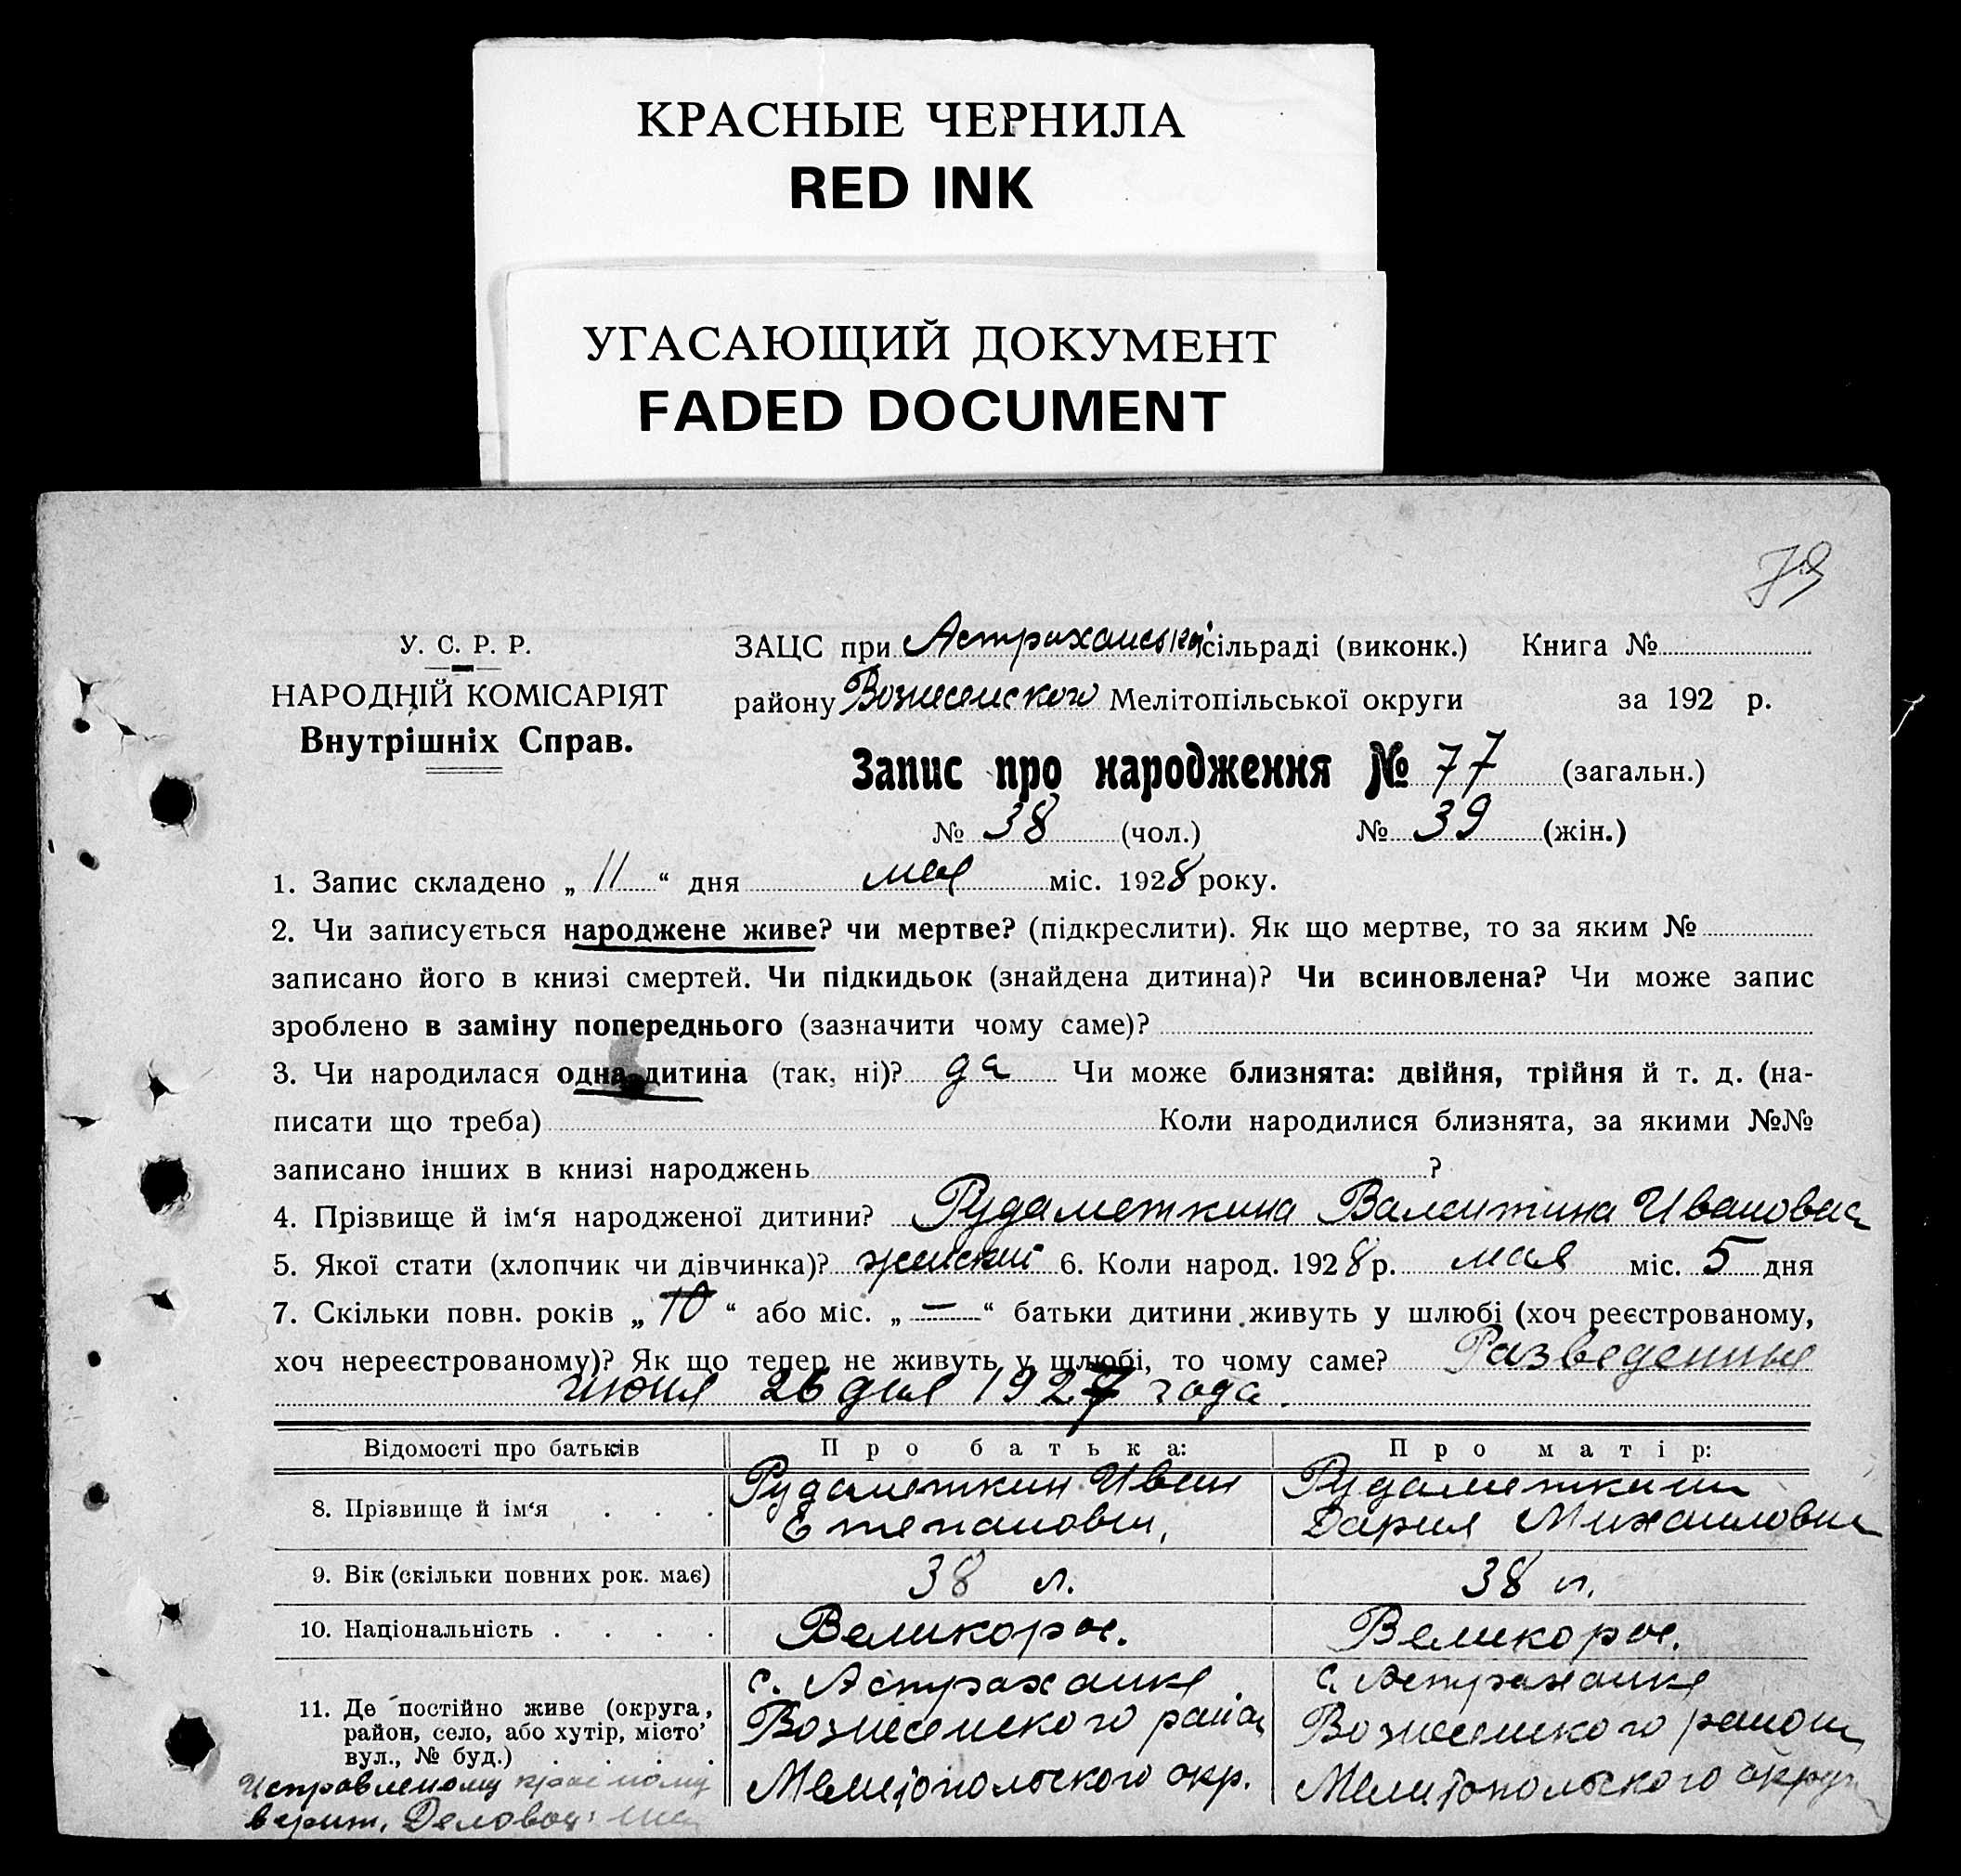 КРАСНЫЕ ЧЕРНИЛА
RED INK
УГАСАЮЩИЙ ДОКУМЕНТ
FADED DOCUMENT
79
У. С. Р. Р.
НАРОДНІЙ КОМІСАРІЯТ
Внутрішніх Справ.
ЗАЦС при Астраханській сільраді (виконк.) Книга №
району Вознесенского Мелітопільської округи за 192 р.
Запис про народження № 77 (загальн.)
№ 38 (чол.) № 39 (жін.)
1. Запис складено „ 11 “ дня мая міс. 1928 року.
2. Чи записується народжене живе? чи мертве? (підкреслити). Як що мертве, то за яким №
записано його в книзі смертей. Чи підкидьок (знайдена дитина)? Чи всиновлена? Чи може запис
зроблено в заміну попереднього (зазначити чому саме)?
3. Чи народилася одна дитина (так, ні)? да Чи може близнята: двійня, трійня й т. д. (на-
писати що треба) Коли народилися близнята, за якими №№
записано інших в книзі народжень ?
4. Прізвище й ім‘я народженої дитини? Рудаметкина Валентина Ивановна
5. Якої стати (хлопчик чи дівчинка)? женский 6. Коли народ. 1928 р. мая міс. 5 дня
7. Скільки повн. років „ 10 “ або міс. „ — “ батьки дитини живуть у шлюбі (хоч реєстрованому,
хоч нереєстрованому)? Як що тепер не живуть у шлюбі, то чому саме? Разведенные
июня 26 дня 1927 года.
Відомості про батьків Про батька: Про матір:
8. Прізвище й ім‘я . . . Рудаметкин Иван Степанович, Рудаметкина Дария Михаиловна
9. Вік (скільки повних рок. має) 38 л. 38 л.
10. Національність . . . . Великорос. Великорос.
11. Де постійно живе (округа, район, село, або хутір, місто’ вул., № буд.) . . . . с. Астраханке Вознесенского района Мелитопольского окр. с. Астраханке Вознесенского района Мелитопольского округа
Исправленому красному
верит. Деловод: